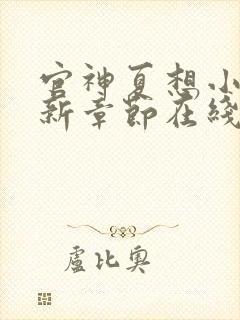 官神夏想小
新章節在綫
盧比奧